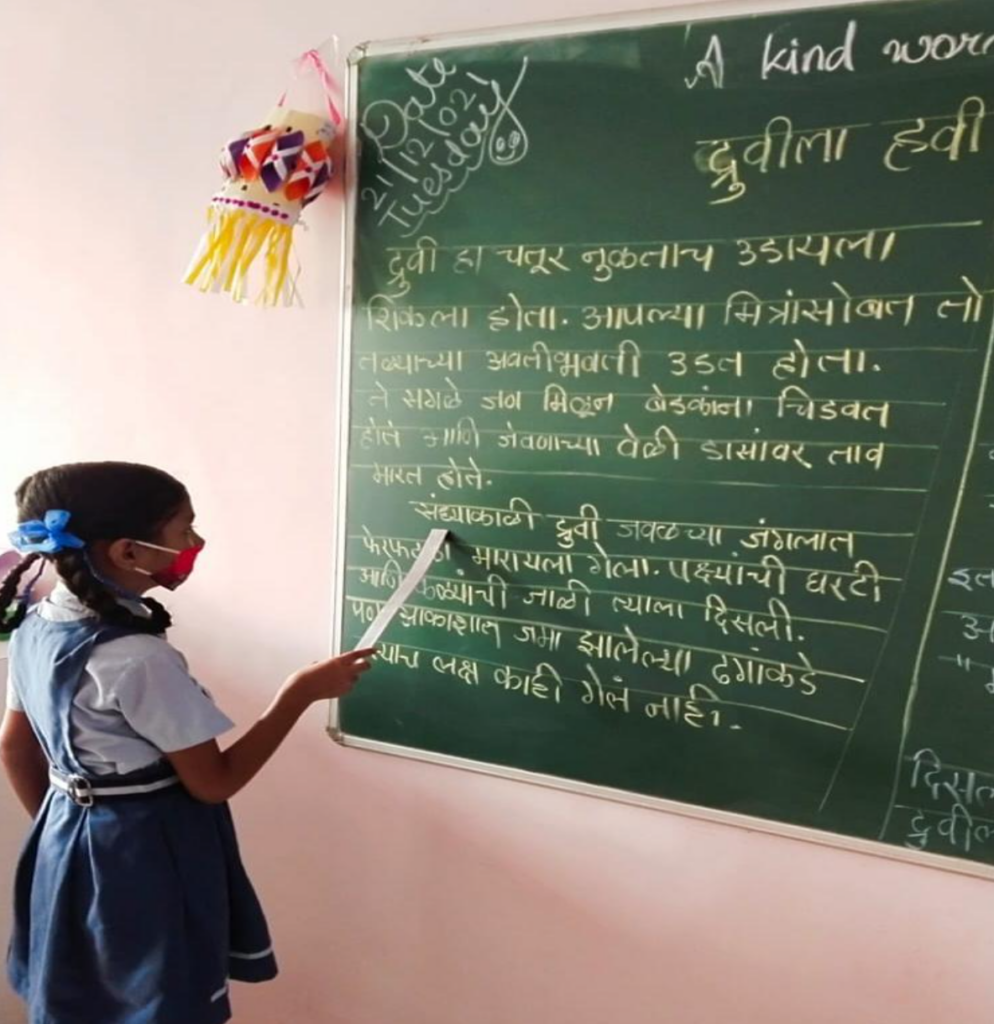 Date
21/12/021
Tuesday
A kind
द्रुवीला हवी
द्रुवी हा चतूर नुकताच उडायला
शिकला होता. आपल्या मित्रांसोबत तो
तळ्याच्या अवतीभवती उडत होता.
ते सगळे जण मिळून बेडकांना चिडवत
होते आणि जेवणाच्या वेळी डासांवर ताव
मारत होते.
संध्याकाळी द्रुवी जवळच्या जंगलात
मारायला गेला. पक्ष्यांची घरटी
आणि जाळी त्याला दिसली.
पण आकाशात जमा झालेल्या ढगांकडे
लक्ष काही गेलं नाही.